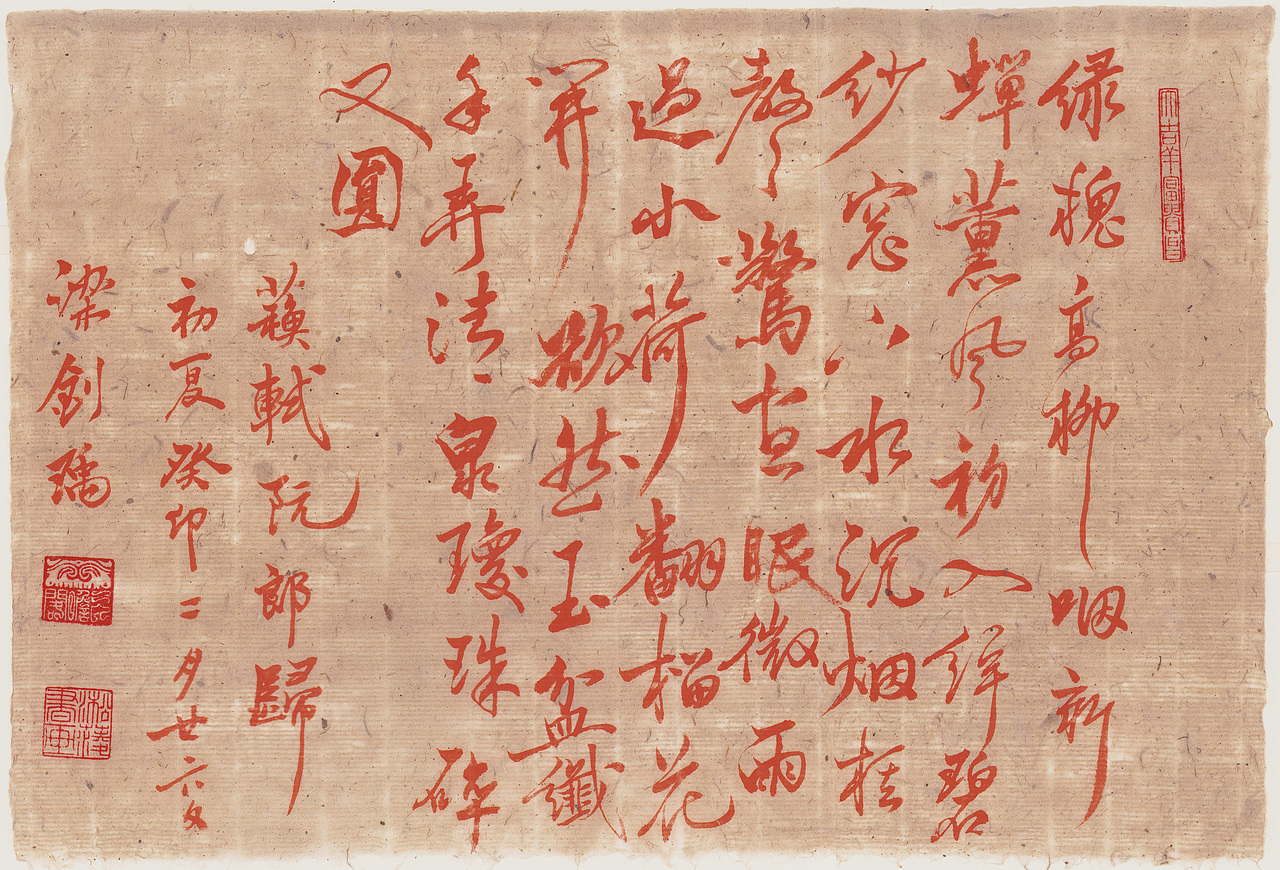 绿槐高柳咽新
蟬薰风初入絃碧
紗窓下水沉烟棋
聲驚昼眠微雨
過小荷翻榴花
開欲然玉盆纖
手弄清泉瓊珠碎
又圓
蘇軾阮郎歸
初夏癸卯二月廿六
梁釗